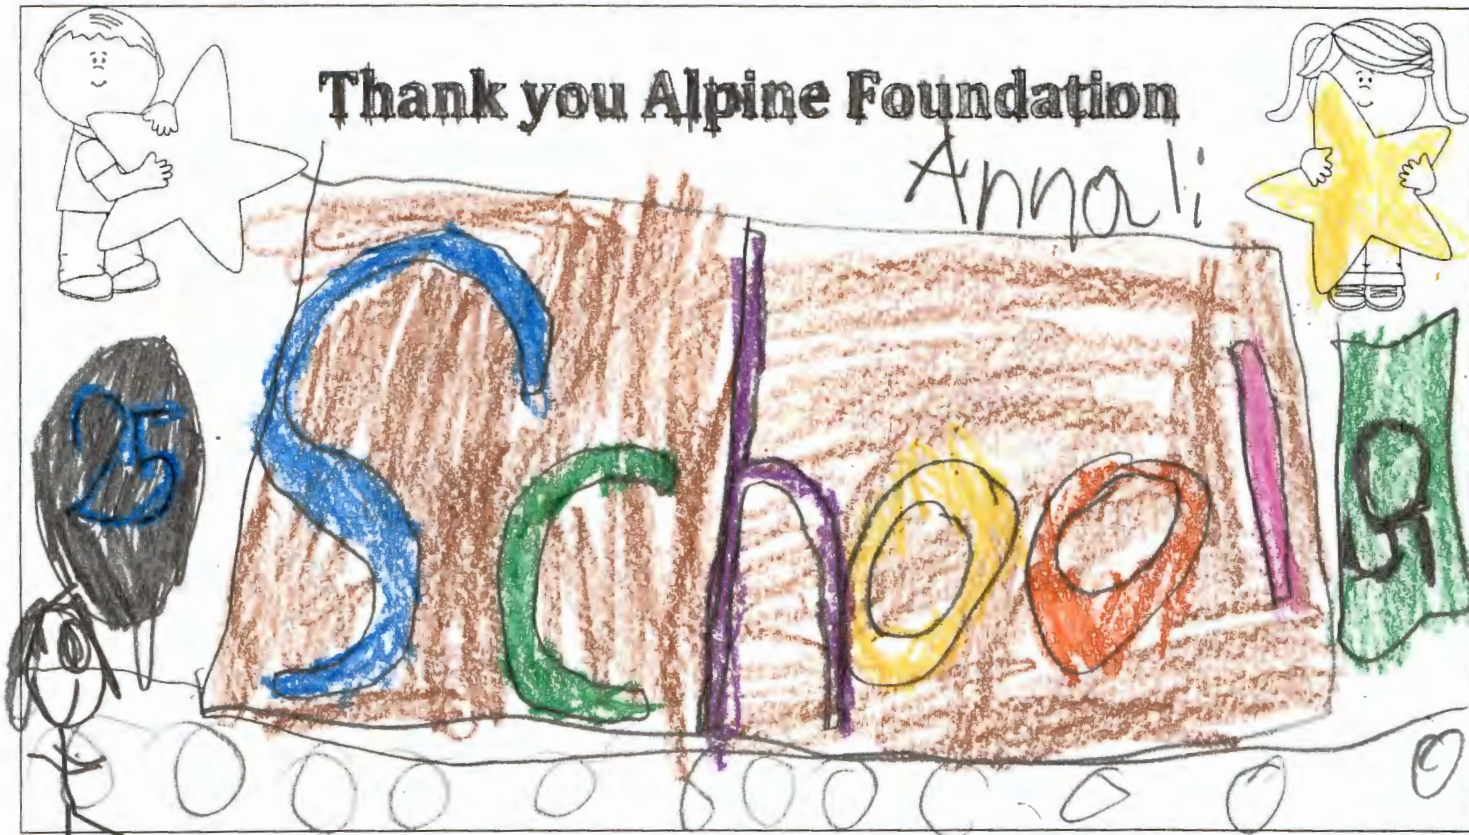 Thank you Alpine Foundation
Annali
25
School